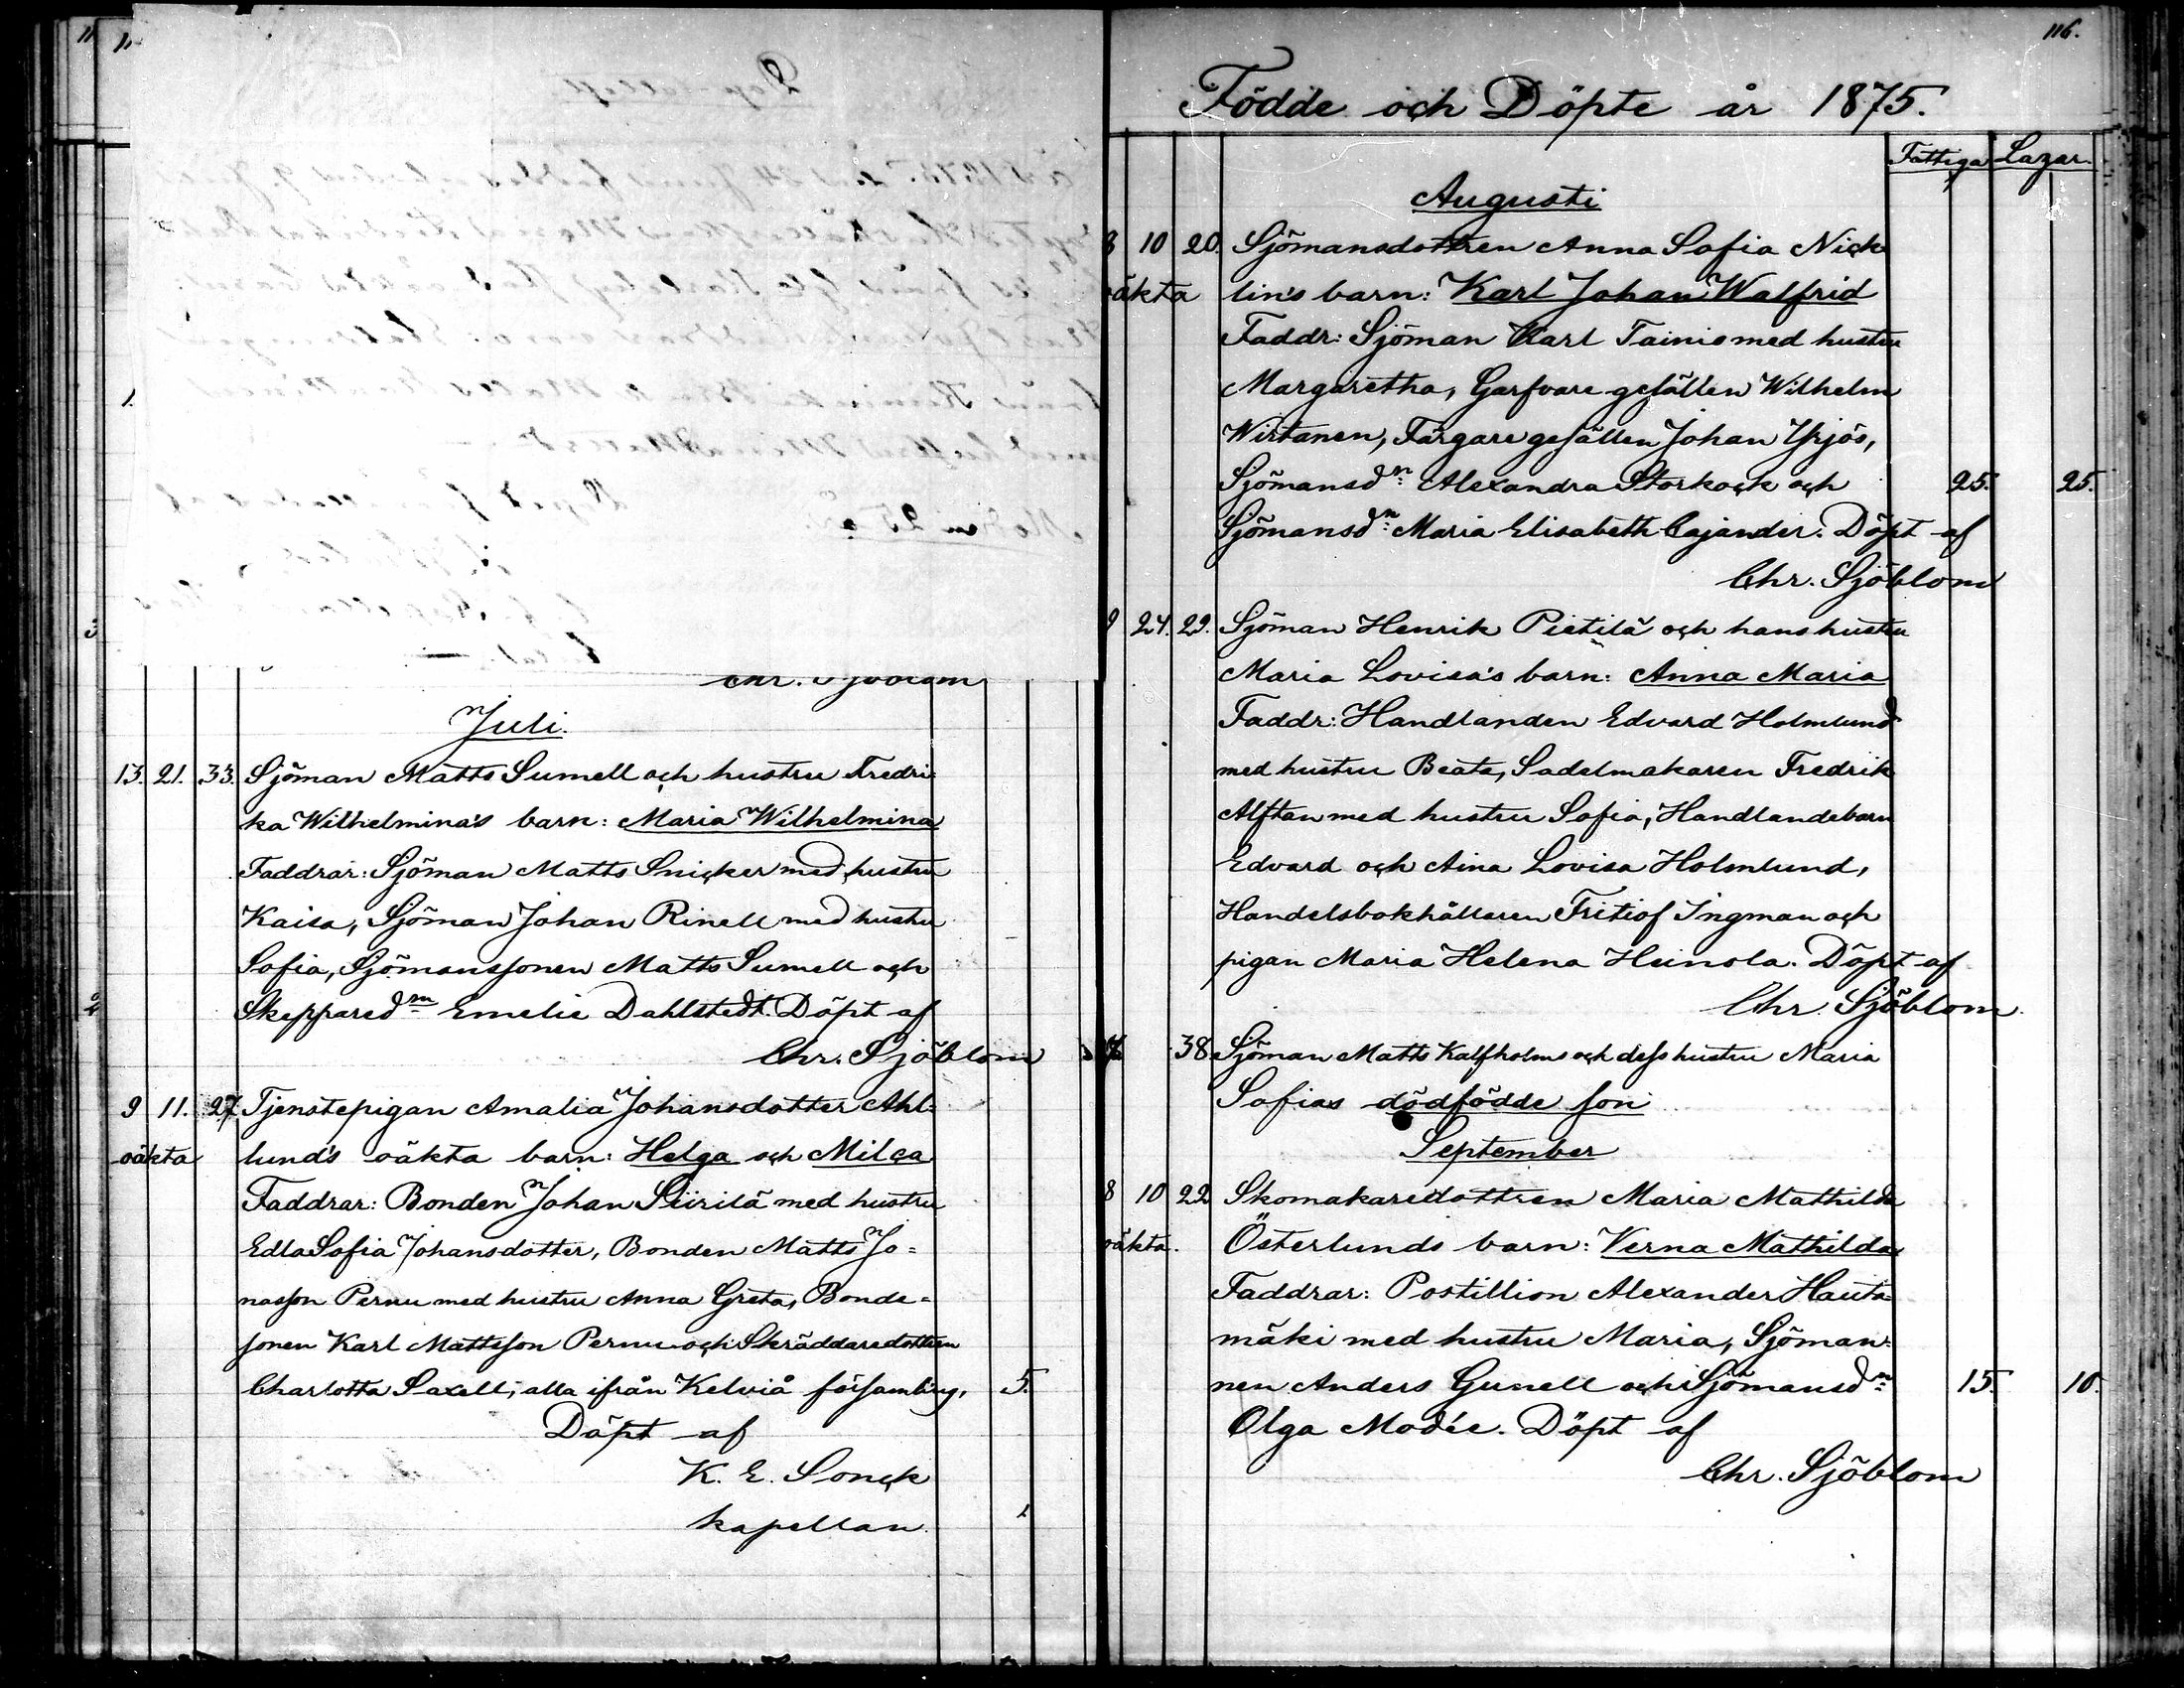 Chr. Sjöblom
Juli.
13. 21. 33. Sjöman Matts Sumell och hustru Fredri-
ka Wilhelmina's barn: Maria Wilhelmina
Faddrar: Sjöman Matts Snicker med hustru
Kaisa, Sjöman Johan Rinell med hustru
Sofia, Sjömanssonen Matts Sumell och
Skepparedm Emelie Dahlstedt. Döpt af
Chr. Sjöblom
9 11. 27. Tjenstepigan Amalia Johansdotter Ahl=
oäkta lund's oäkta barn: Helga och Milca
Faddrar: Bonden Johan Siirilä med hustru
Edla Sofia Johansdotter, Bonden Matts Jo=
nasson Pernu med hustru Anna Greta, Bonde=
sonen Karl Mattsson Pernu och Skräddaredottren
Charlotta Saxell, alla ifrån Kelviå församling, 5.
Döpt af
K. E. Sonck
kapellan.
116.
Födde och Döpte år 1875.
Fattiga Lazar.
Augusti
8 10 20. Sjömansdottren Anna Sofia Nick
oäkta lin's barn: Karl Johan Walfrid
Faddr: Sjöman Karl Tainio med hustru
Margaretha, Garfvare gesällen Wilhelm
Wirtanen, Färgare gesällen Johan Yrjös,
Sjömansdn: Alexandra Storkock och 25. 25.
Sjömansdn: Maria Elisabeth Cajander. Döpt af
Chr. Sjöblom
9 24. 29. Sjöman Henrik Pietilä och hans hustru
Maria Lovisa's barn: Anna Maria
Faddr: Handlanden Edvard Holmlund
med hustru Beata, Sadelmakaren Fredrik
Alftan med hustru Sofia, Handlandebarn
Edvard och Aina Lovisa Holmlund,
Handelsbokhållaren Fritiof Ingman och
pigan Maria Helena Heinola. Döpt af
Chr. Sjöblom.
38 Sjöman Matts Kalfholms och dess hustru Maria
Sofias dödfödde son
September
8 10 22 Skomakaredottren Maria Mathilda
oäkta. Österlunds barn: Verna Mathilda
Faddrar: Postillion Alexander Hauta=
mäki med hustru Maria, Sjöman=
nen Anders Gunell och Sjömansdn: 15. 10.
Olga Modée. Döpt af
Chr. Sjöblom